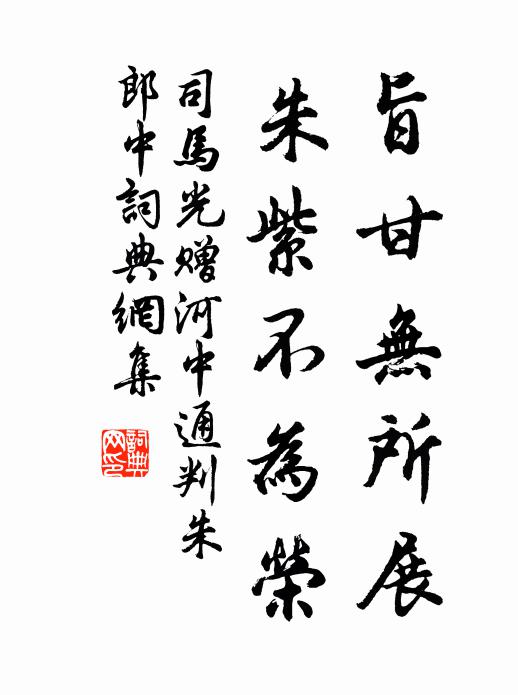 旨甘無所展
朱紫不為榮
司馬光贈河中通判朱
郎中詞典網集
詞典网印